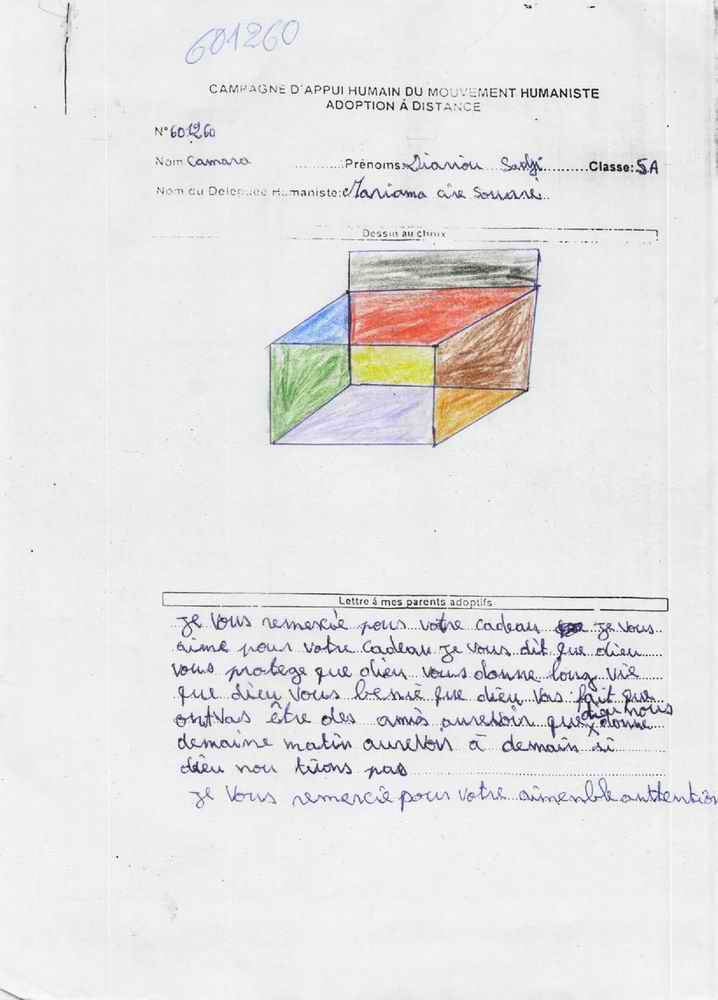 601260
CAMPAGNE D'APPUI HUMAIN DU MOUVEMENT HUMANISTE
ADOPTION À DISTANCE
N° 601260
Nom Camara Prénoms: Diariou Sadji Classe: 5A
Nom du Délégué Humaniste: Mariama cire Soumaré
Dessin au choix
Lettre à mes parents adoptifs
Je vous remercie pour votre cadeau Je vous
aime pour votre cadeau Je vous dit que dieu
vous protege que dieu vous donne long vie
que dieu vous benie que dieu vas fait que
ontvas être des amis aurevoir que dieu nous donne
demaine matin aurevoir à demain si
dieu nou tuons pas
Je vous remercie pour votre aimenble anttention